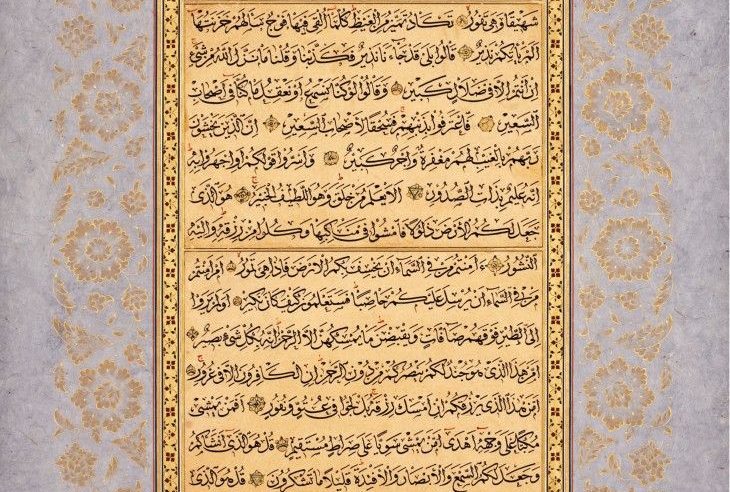 شَهِيقًا وَهِيَ تَفُورُ تَكَادُ تَمَيَّزُ مِنَ الْغَيْظِ كُلَّمَا أُلْقِيَ فِيهَا فَوْجٌ سَأَلَهُمْ خَزَنَتُهَا
أَلَمْ يَأْتِكُمْ نَذِيرٌ قَالُوا بَلَى قَدْ جَاءَنَا نَذِيرٌ فَكَذَّبْنَا وَقُلْنَا مَا نَزَّلَ اللَّهُ مِنْ شَيْءٍ
إِنْ أَنْتُمْ إِلَّا فِي ضَلَالٍ كَبِيرٍ وَقَالُوا لَوْ كُنَّا نَسْمَعُ أَوْ نَعْقِلُ مَا كُنَّا فِي أَصْحَابِ
السَّعِيرِ فَاعْتَرَفُوا بِذَنْبِهِمْ فَسُحْقًا لِأَصْحَابِ السَّعِيرِ إِنَّ الَّذِينَ يَخْشَوْنَ
رَبَّهُمْ بِالْغَيْبِ لَهُمْ مَغْفِرَةٌ وَأَجْرٌ كَبِيرٌ وَأَسِرُّوا قَوْلَكُمْ أَوِ اجْهَرُوا بِهِ
إِنَّهُ عَلِيمٌ بِذَاتِ الصُّدُورِ أَلَا يَعْلَمُ مَنْ خَلَقَ وَهُوَ اللَّطِيفُ الْخَبِيرُ هُوَ الَّذِي
جَعَلَ لَكُمُ الْأَرْضَ ذَلُولًا فَامْشُوا فِي مَنَاكِبِهَا وَكُلُوا مِنْ رِزْقِهِ وَإِلَيْهِ
النُّشُورُ ءَأَمِنْتُمْ مَنْ فِي السَّمَاءِ أَنْ يَخْسِفَ بِكُمُ الْأَرْضَ فَإِذَا هِيَ تَمُورُ أَمْ أَمِنْتُمْ
مَنْ فِي السَّمَاءِ أَنْ يُرْسِلَ عَلَيْكُمْ حَاصِبًا فَسَتَعْلَمُونَ كَيْفَ كَانَ نَكِيرِ أَوَلَمْ يَرَوْا
إِلَى الطَّيْرِ فَوْقَهُمْ صَافَّاتٍ وَيَقْبِضْنَ مَا يُمْسِكُهُنَّ إِلَّا الرَّحْمَنُ إِنَّهُ بِكُلِّ شَيْءٍ بَصِيرٌ
أَمَّنْ هَذَا الَّذِي هُوَ جُنْدٌ لَكُمْ يَنْصُرُكُمْ مِنْ دُونِ الرَّحْمَنِ إِنِ الْكَافِرُونَ إِلَّا فِي غُرُورٍ
أَمَّنْ هَذَا الَّذِي يَرْزُقُكُمْ إِنْ أَمْسَكَ رِزْقَهُ بَلْ لَجُّوا فِي عُتُوٍّ وَنُفُورٍ أَفَمَنْ يَمْشِي
مُكِبًّا عَلَى وَجْهِهِ أَهْدَى أَمَّنْ يَمْشِي سَوِيًّا عَلَى صِرَاطٍ مُسْتَقِيمٍ قُلْ هُوَ الَّذِي أَنْشَأَكُمْ
وَجَعَلَ لَكُمُ السَّمْعَ وَالْأَبْصَارَ وَالْأَفْئِدَةَ قَلِيلًا مَا تَشْكُرُونَ قُلْ هُوَ الَّذِي